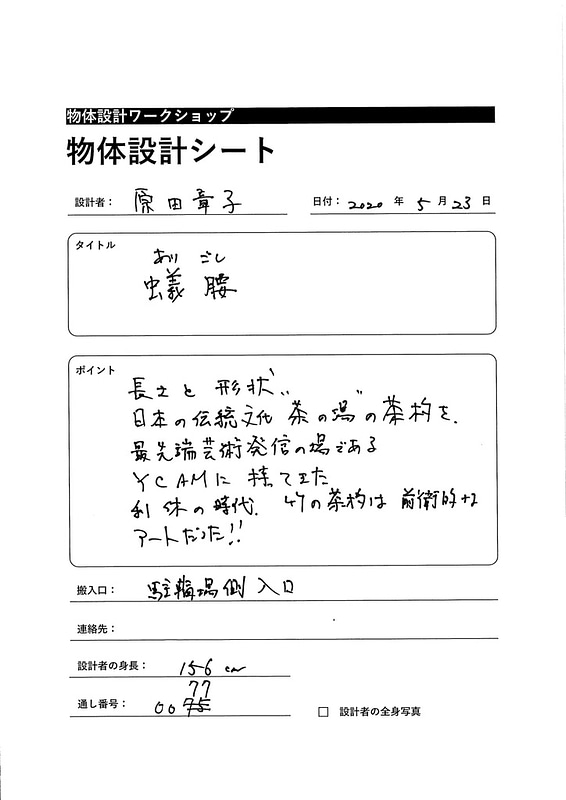 物体設計ワークショップ
物体設計シート
設計者： 原田章子
日付： 2020 年 5 月 23 日
タイトル
あり ごし
蟻 腰
ポイント
長さと 形状、、
日本の伝統文化 茶の場〃の茶杓を、
最先端芸術発信の場である
YCAMに 捨てきた
利休の時代、 竹の茶杓は 前衛的な
アートだった!!
搬入口： 駐輪場側 入口
連絡先：
設計者の身長： 156 cm
77
通し番号： 0075
設計者の全身写真